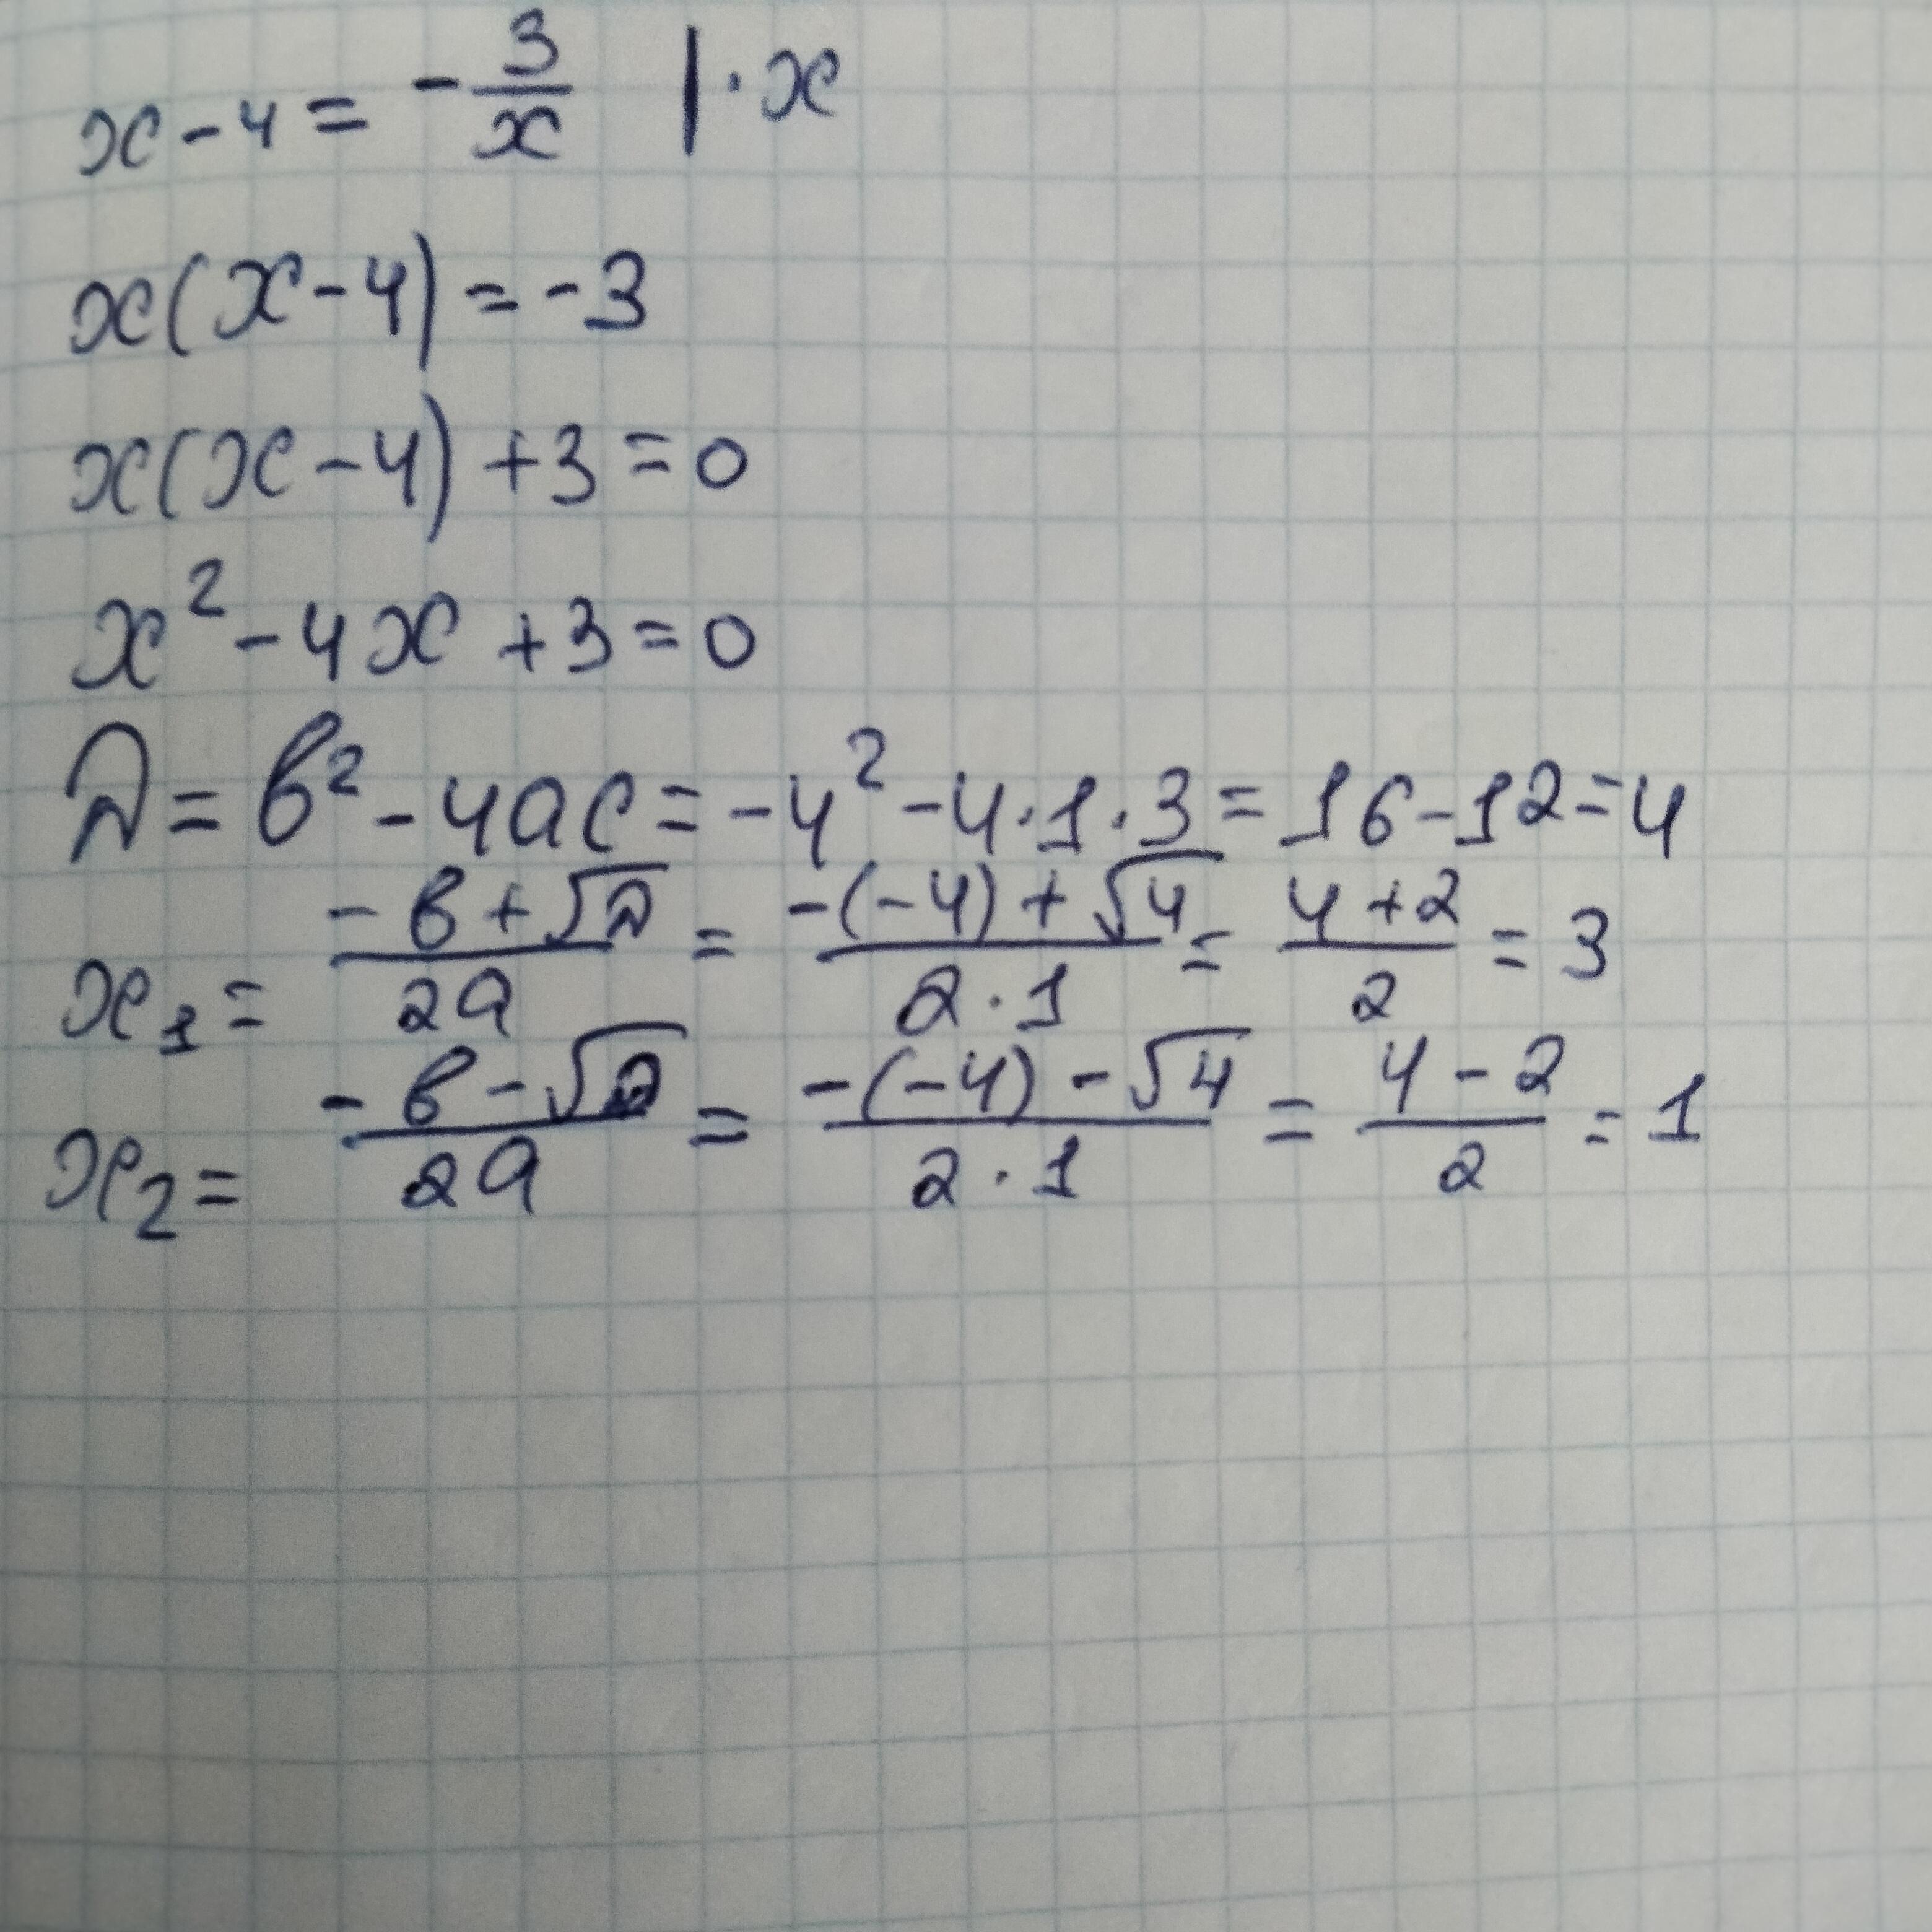 x - 4 = - 3/x | · x
x(x - 4) = -3
x(x - 4) + 3 = 0
x² - 4x + 3 = 0
D = b² - 4ac = -4² - 4·1·3 = 16 - 12 = 4
x₁ = (-b + √D)/2a = (-(-4) + √4)/(2·1) = (4 + 2)/2 = 3
x₂ = (-b - √D)/2a = (-(-4) - √4)/(2·1) = (4 - 2)/2 = 1